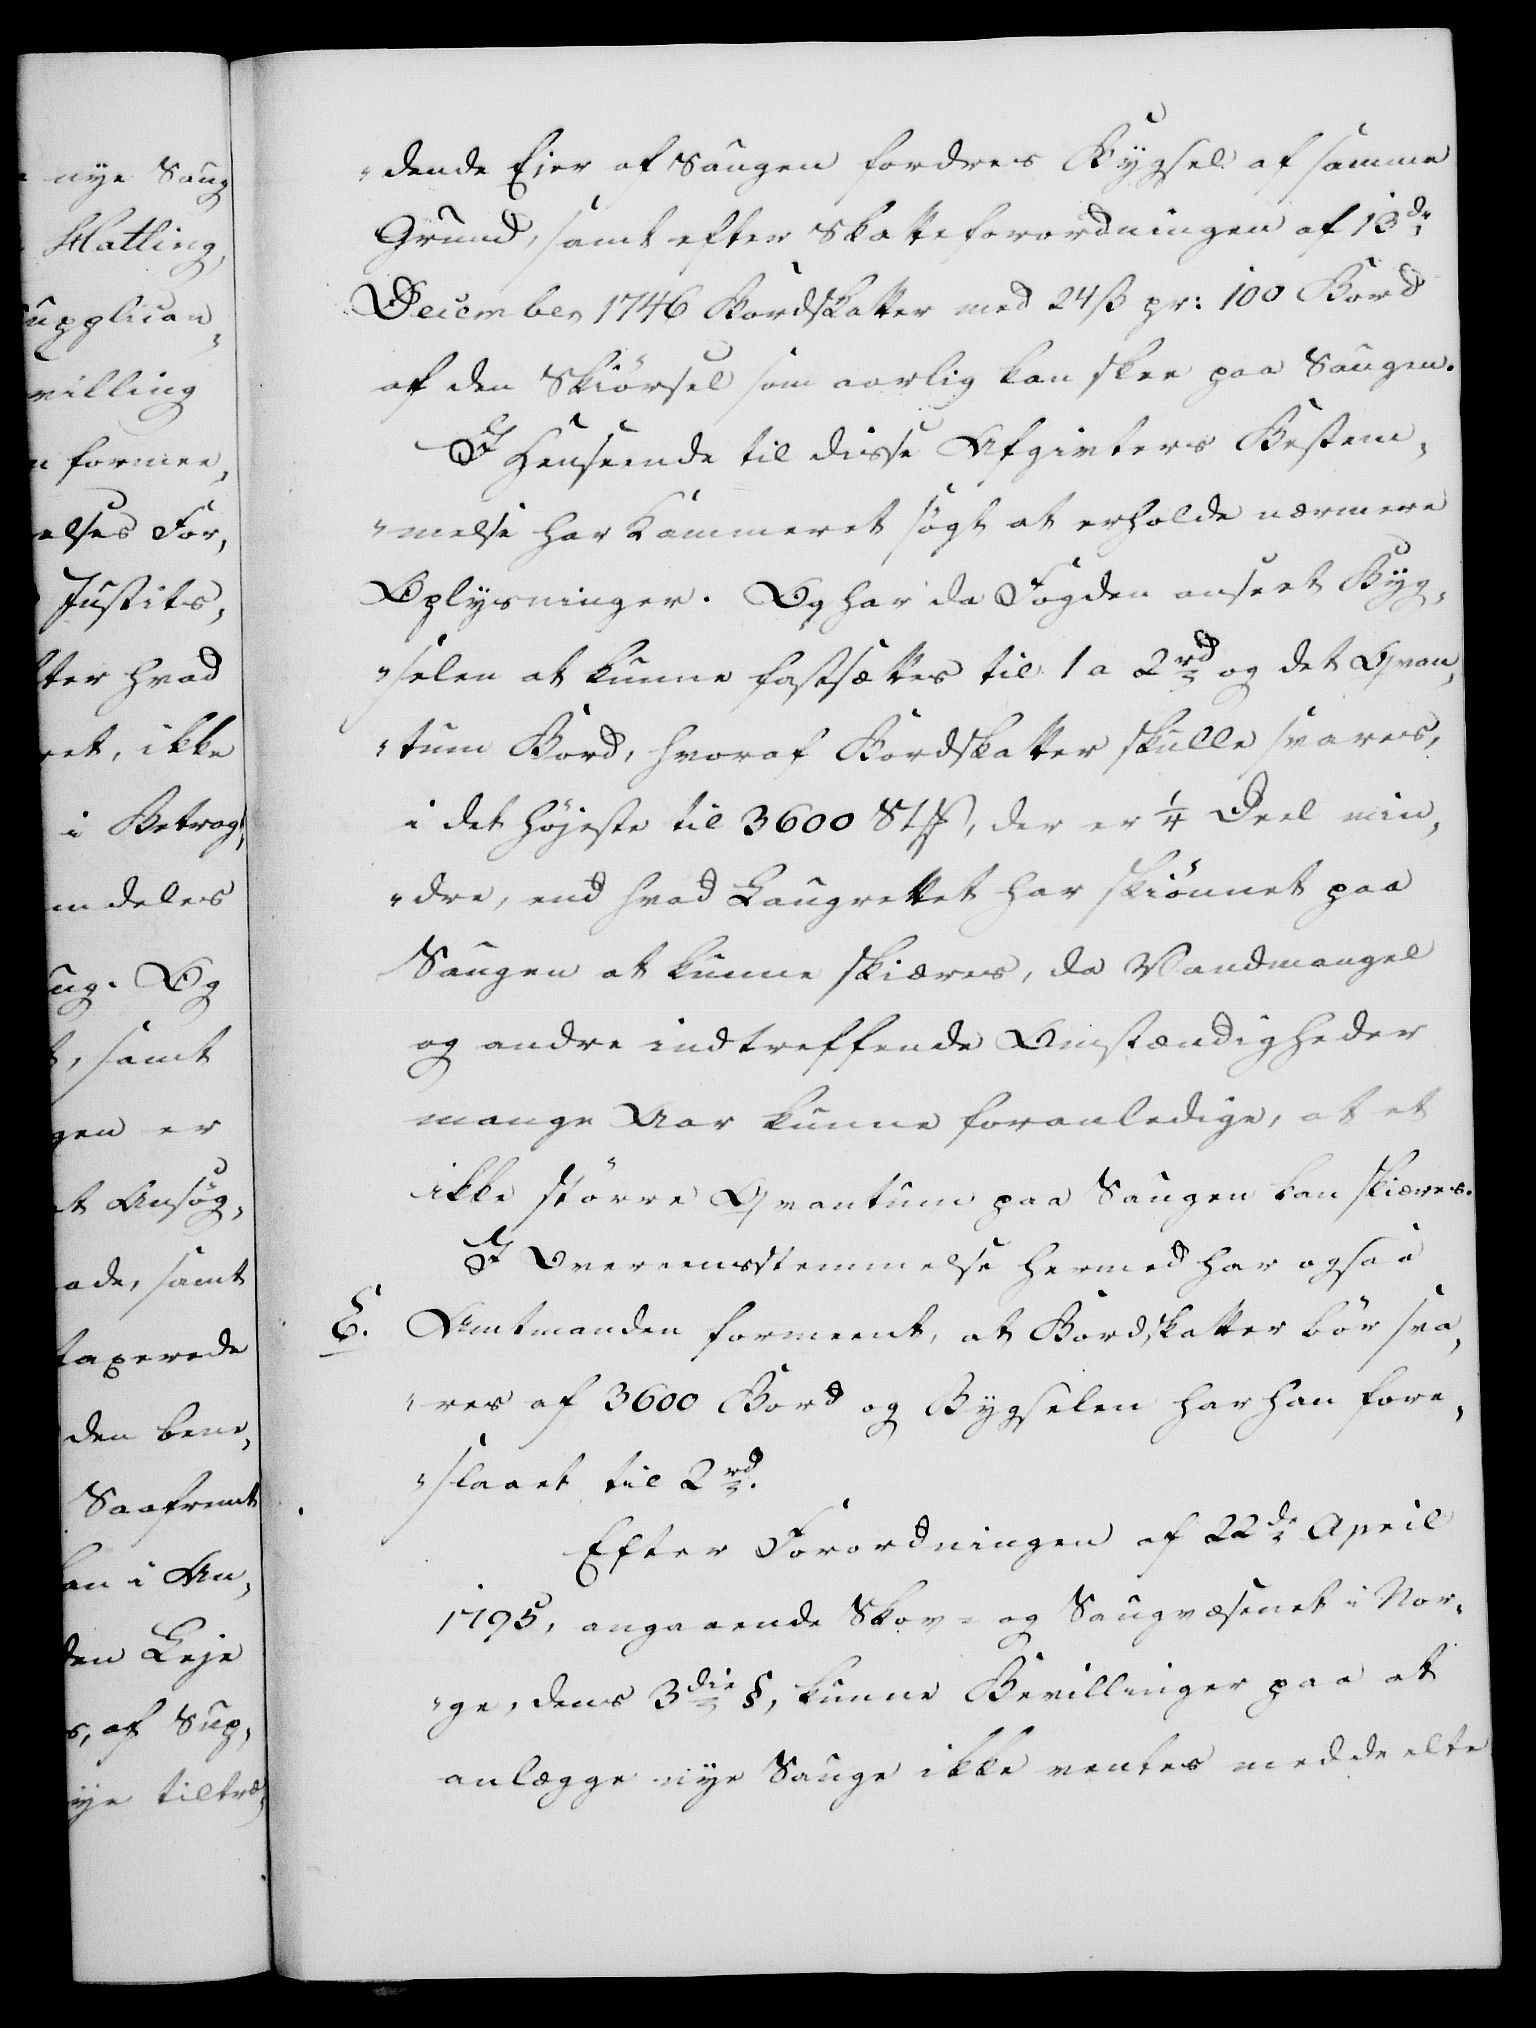 nye Saug
Matling,
upplican,
villing
n formee,
elses For,
Justits,
ter hvad
et, ikke
i Betrag,
m deles
ug. Og
, samt
gen er
t Ansøg,
ade, samt
taxerede
den bene,
Saafremt
kan i An,
den Leje
s, af Sup,
ye tiltræ,
"dende Ejer af Saugen fordres Bÿgsel af samme
Grund, samt efter Skatteforordningen af 13de
December 1746 Bordskatter med 24 ß pr: 100 Bord
af den Skiörsel som aarlig kan skee paa Saugen.
I Henseende til disse Afgivters Bestem,
"melse har Kammeret søgt at erholde nærmere
Oplÿsninger. Og har da Fogden anseet Bÿg,
"selen at kunne fastsættes til 1 a 2 rd og det Qvan,
"tum Bord, hvoraf Bordskatter skulle svares,
i det höjeste til 3600 Stk, der er 1/4 Deel min,
"dre, end hvad Laugrettet har skiönnet paa
Saugen at kunne skiæres, da Vandmangel
og andre indtreffende Omstændigheder
mange Aar kunne foranledige, at et
ikke större Qvantum paa Saugen kan skiæres.
I Overeensstemmelse hermed har ogsaa
E. Amtmanden formeent, at Bordskatter bör sva,
"res af 3600 Bord og Bygselen har han fore,
"slaaet til 2 rd.
Efter Forordningen af 22de April
1795, angaaende Skov- og Saugvæsenet i Nor,
"ge, dens 3die §, kunne Bevillinger paa at
anlægge nÿe Sauge ikke ventes meddeelte